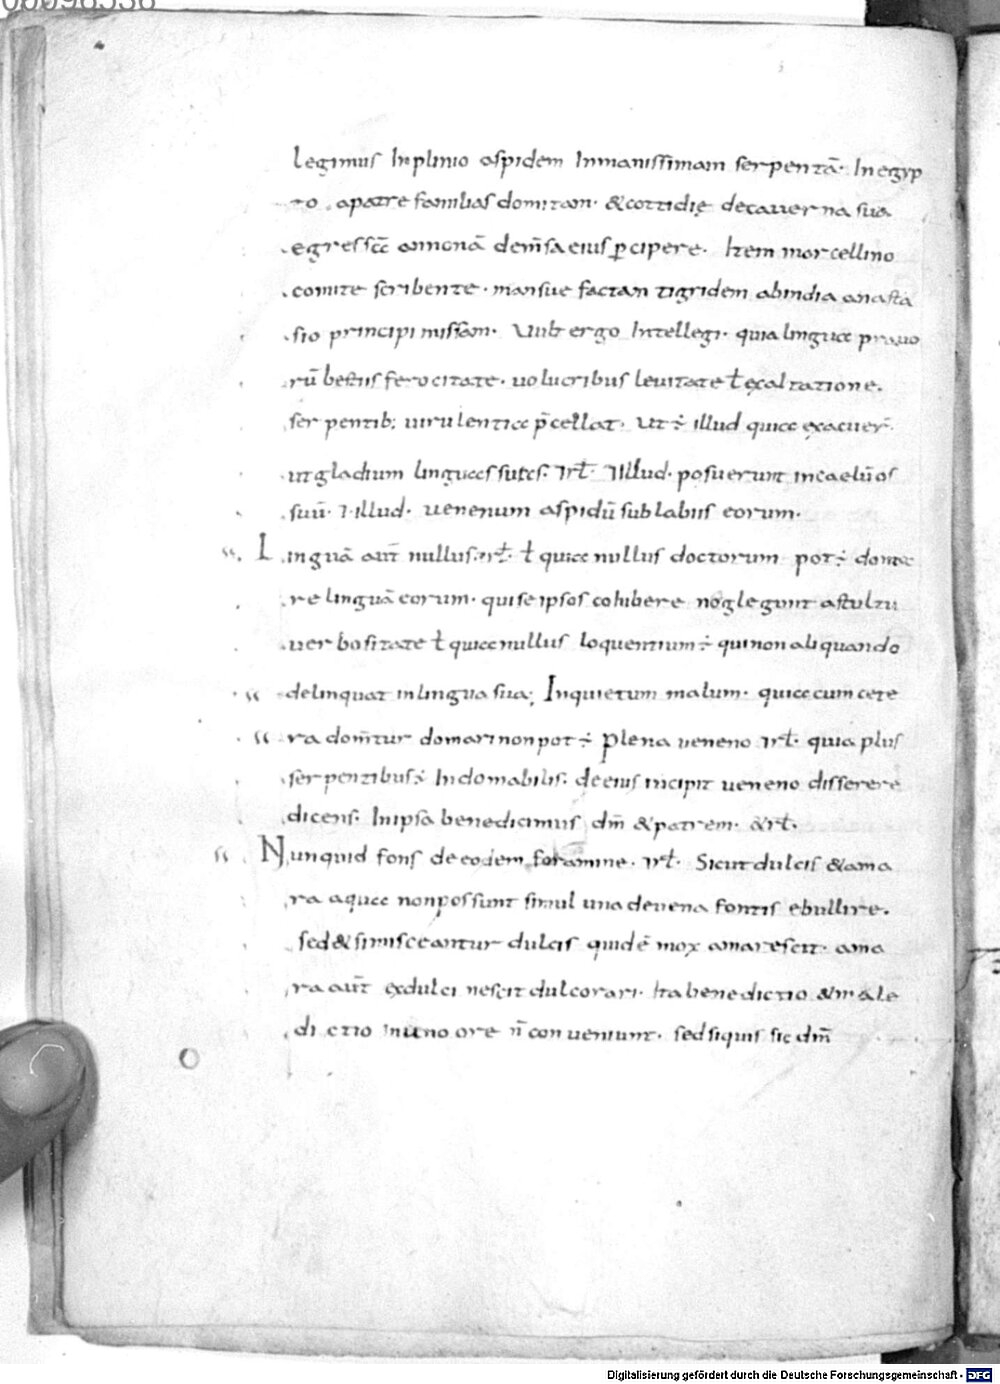 00098538
legimus Inplinio aspidem Inmanissimam serpentā· In egyp
to apatre familias domitam· &cottidie decauerna sua
egressā annonā dem̄sa eius p̱cipere· Item marcellino
comite scribente· mansue factam tigridem abindia anasta
sio principi missam· Vult ergo Intellegi· quia linguae prauo
rū bestiis ferocitate· uolucribus leuitate ł exaltatione·
serpentib; uirulentiae p̄cellat· Ut ÷ illud quiae exacuer̄
ut gladium linguas suas· ⁊rł· ⁊illud· posuerunt incaelū os
suū· ⁊illud· uenenum aspidū sub labiis eorum·
Linguā aut̄ nullus ⁊rł· ł quiae nullus doctorum pot÷ doma
re linguā eorum· qui se ipsos cohibere neglegunt astulta
uerbositate ł quiae nullus loquentium ÷ qui non aliquando
delinquat inlingua sua; Inquietum malum· quiae cum cete
ra domītur domari non pot÷ plena ueneno ⁊rł· quia plus
serpentibus ÷ Indomabilis· de eius incipit ueneno disserere
dicens· Inipsa benedicimus dm̄ &patrem· &rł·
Nunquid fons de eodem foramine· ⁊rł· Sicut dulcis &ama
ra aquae non possunt simul una deuena fontis ebullire·
sed & si misceantur dulcis quidē mox amarescit· ama
ra aut̄ exdulci nescit dulcorari· Ita benedictio &male
dictio inuno ore n̄ conueniunt· sed siquis sic dm̄
Digitalisierung gefördert durch die Deutsche Forschungsgemeinschaft · DFG